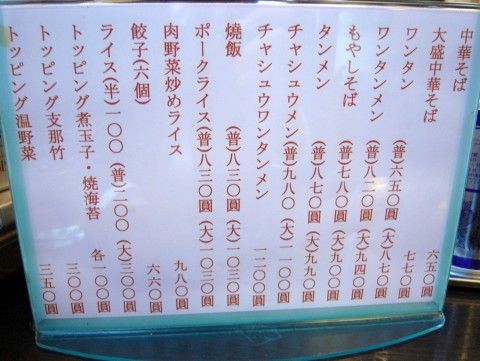 中華そば 六五〇圓
大盛中華そば 七七〇圓
ワンタン (普)六五〇圓 (大)八七〇圓
ワンタンメン (普)八二〇圓 (大)九四〇圓
もやしそば (普)七八〇圓 (大)九〇〇圓
タンメン (普)八七〇圓 (大)九九〇圓
チャシュウメン(普)九八〇 (大)一一〇〇圓
チャシュウワンタンメン 一二〇〇圓
燒飯 (普)八三〇圓 (大)一〇三〇圓
ポークライス(普)八三〇圓 (大)一〇三〇圓
肉野菜炒めライス 九八〇圓
餃子(六個) 六六〇圓
ライス(半)一〇〇 (普)二〇〇 (大)三〇〇圓
トッピング煮玉子・焼海苔 各一〇〇圓
トッピング支那竹 三〇〇圓
トッピング温野菜 三五〇圓